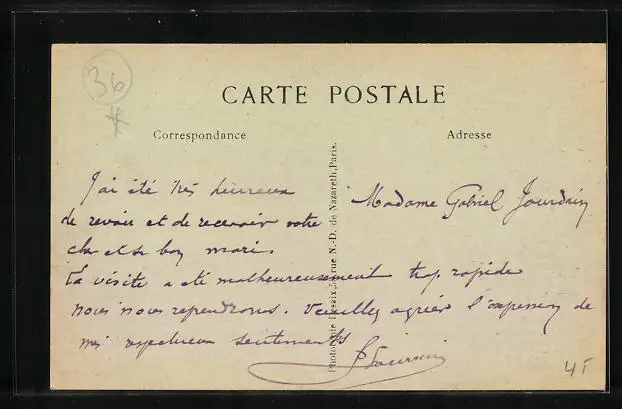 36
CARTE POSTALE
Correspondance
Adresse
J'ai été très heureux
de revoir et de recevoir votre
cher et si bon mari.
Madame Gabriel Jourdain
La visite a été malheureusement trop rapide
nous nous reprendrons. Veuillez agréer l'expression de
mes respectueux sentiments
rue N.-D. de Nazareth, Paris.
45